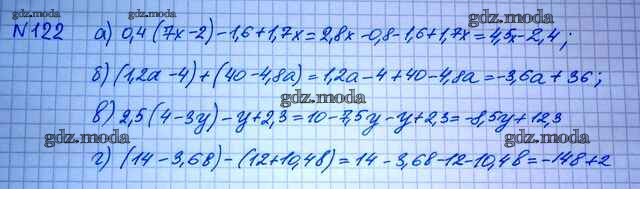 gdz.moda gdz.moda gdz.moda
N122 а) 0,4(7x-2)-1,6+1,7x=2,8x-0,8-1,6+1,7x=4,5x-2,4;
б) (1,2a-4)+(40-4,8a)=1,2a-4+40-4,8a=-3,6a+36;
gdz.moda
в) 2,5(4-3y)-y+2,3=10-7,5y-y+2,3=-8,5y+12,3
gdz.moda gdz.moda
г) (14-3,6в)-(12+10,4в)=14-3,6в-12-10,4в=-14в+2
gdz.moda